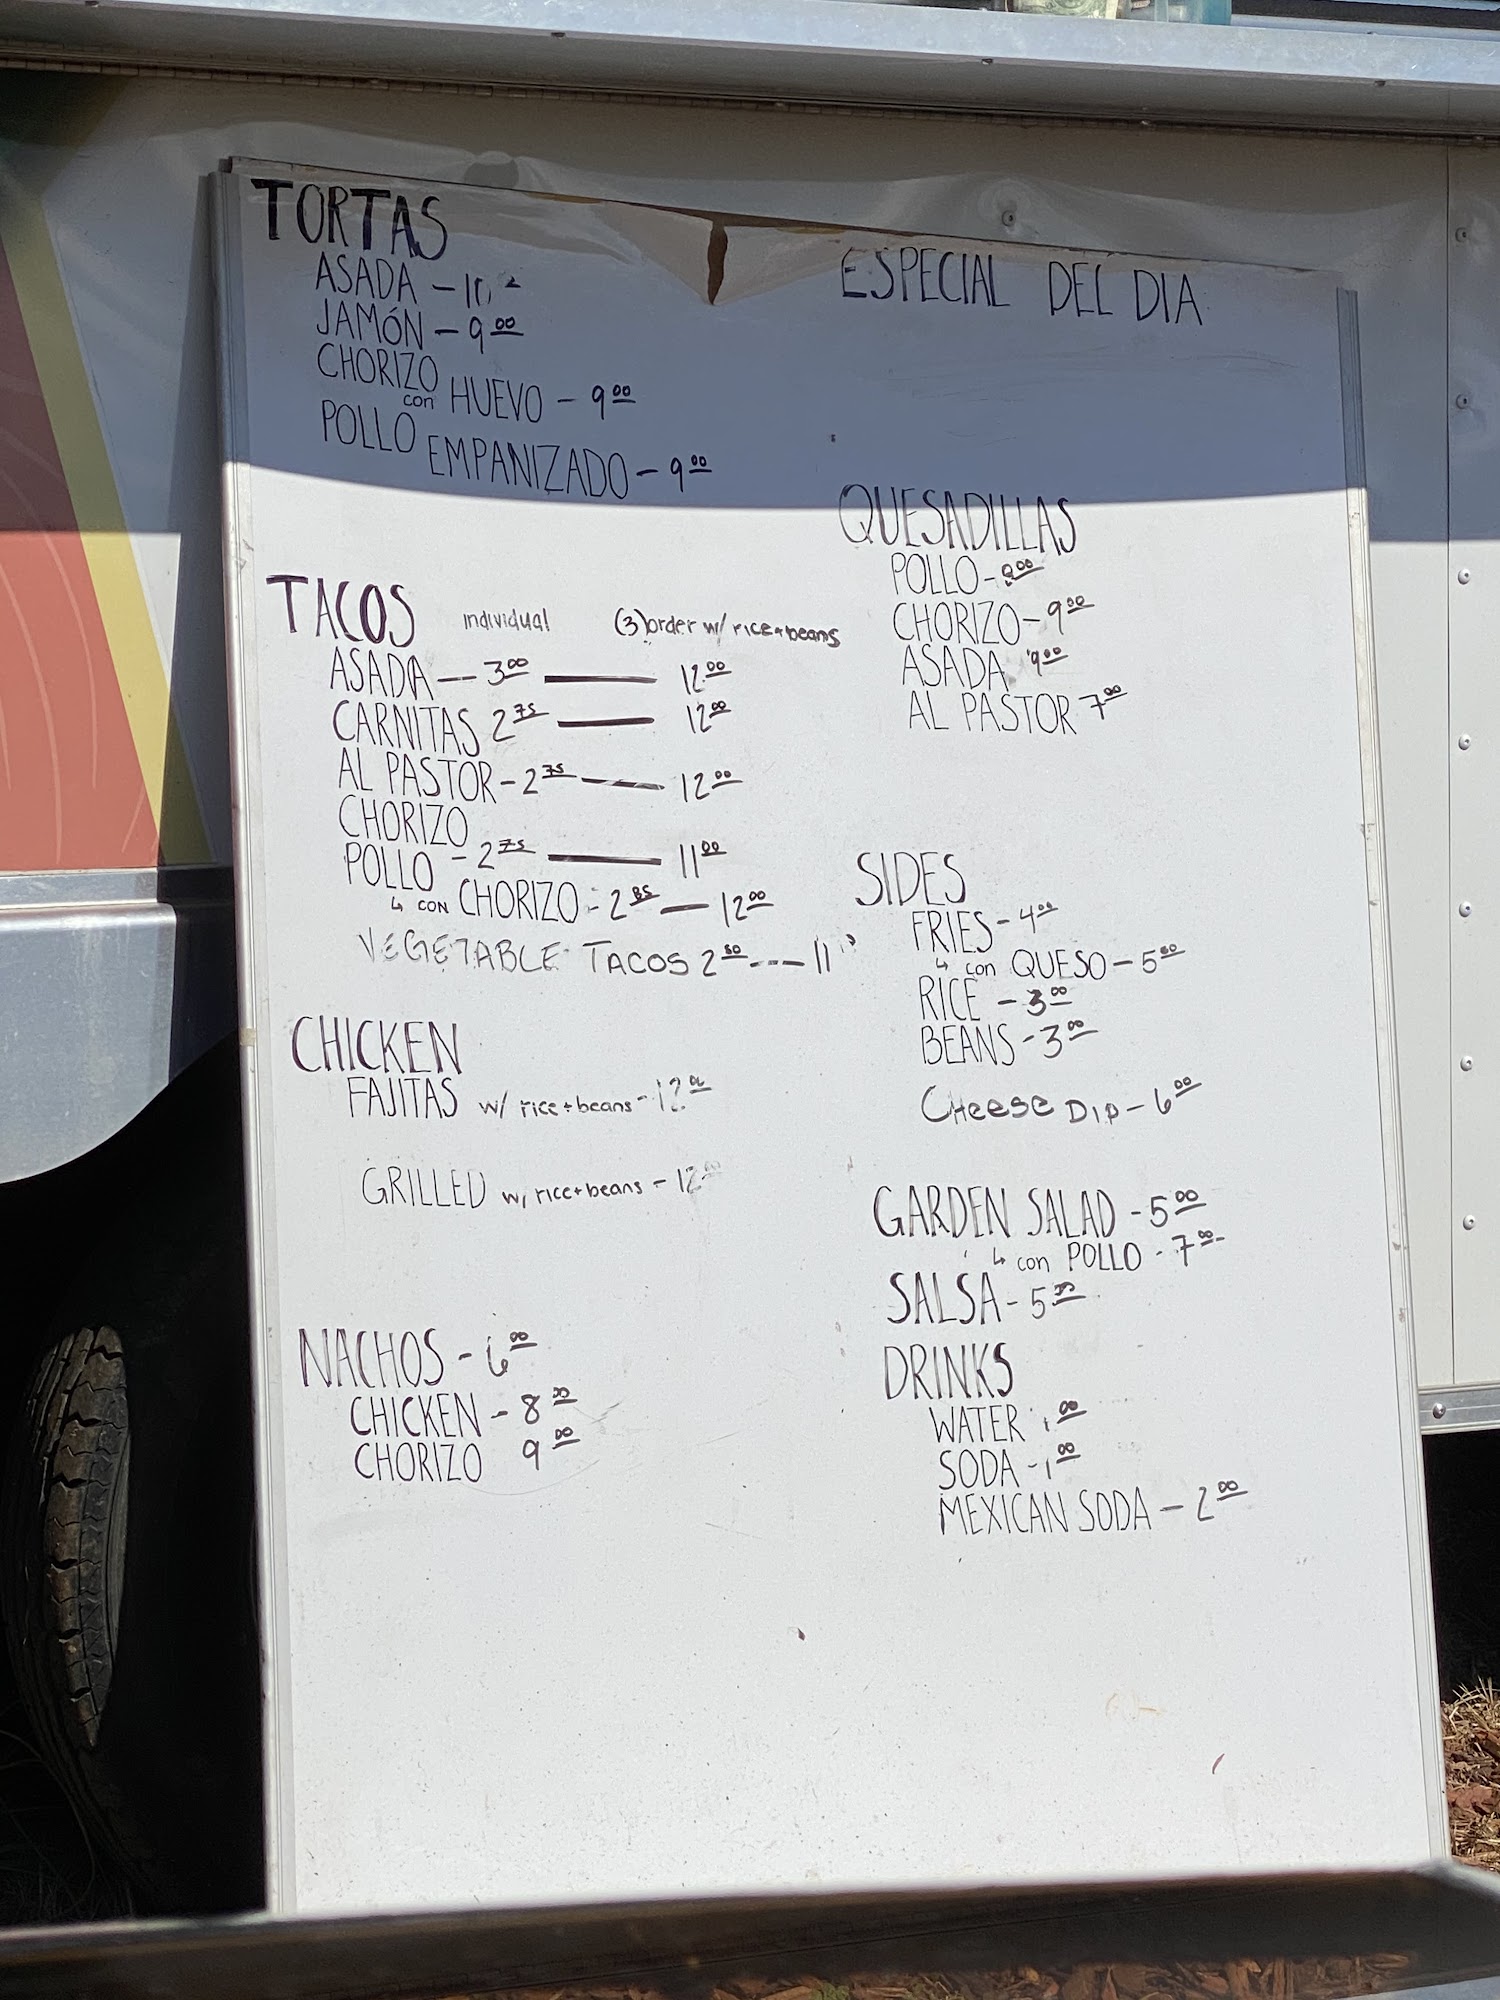 TORTAS
ASADA –
JAMÓN – 9.00
CHORIZO
con HUEVO – 9.00
POLLO
EMPANIZADO – 9.00
TACOS individual (3) order w/ rice + beans
ASADA — 3.00 —— 12.00
CARNITAS 2.75 —— 12.00
AL PASTOR – 2.75 —— 12.00
CHORIZO
POLLO – 2.75 —— 11.00
↳ CON CHORIZO – 2.85 — 12.00
VEGETABLE TACOS 2.50 --- 11
CHICKEN
FAJITAS w/ rice + beans – 12.00
GRILLED w/ rice + beans – 12.00
NACHOS – 6.00
CHICKEN – 8.00
CHORIZO 9.00
ESPECIAL DEL DIA
QUESADILLAS
POLLO –
CHORIZO – 9.00
ASADA 9.00
AL PASTOR 7.00
SIDES
FRIES – 4.00
↳ con QUESO – 5.50
RICE – 3.00
BEANS – 3.00
CHeese DIP – 6.00
GARDEN SALAD – 5.00
↳ con POLLO – 7.00
SALSA – 5.00
DRINKS
WATER 1.00
SODA – 1.00
MEXICAN SODA – 2.00